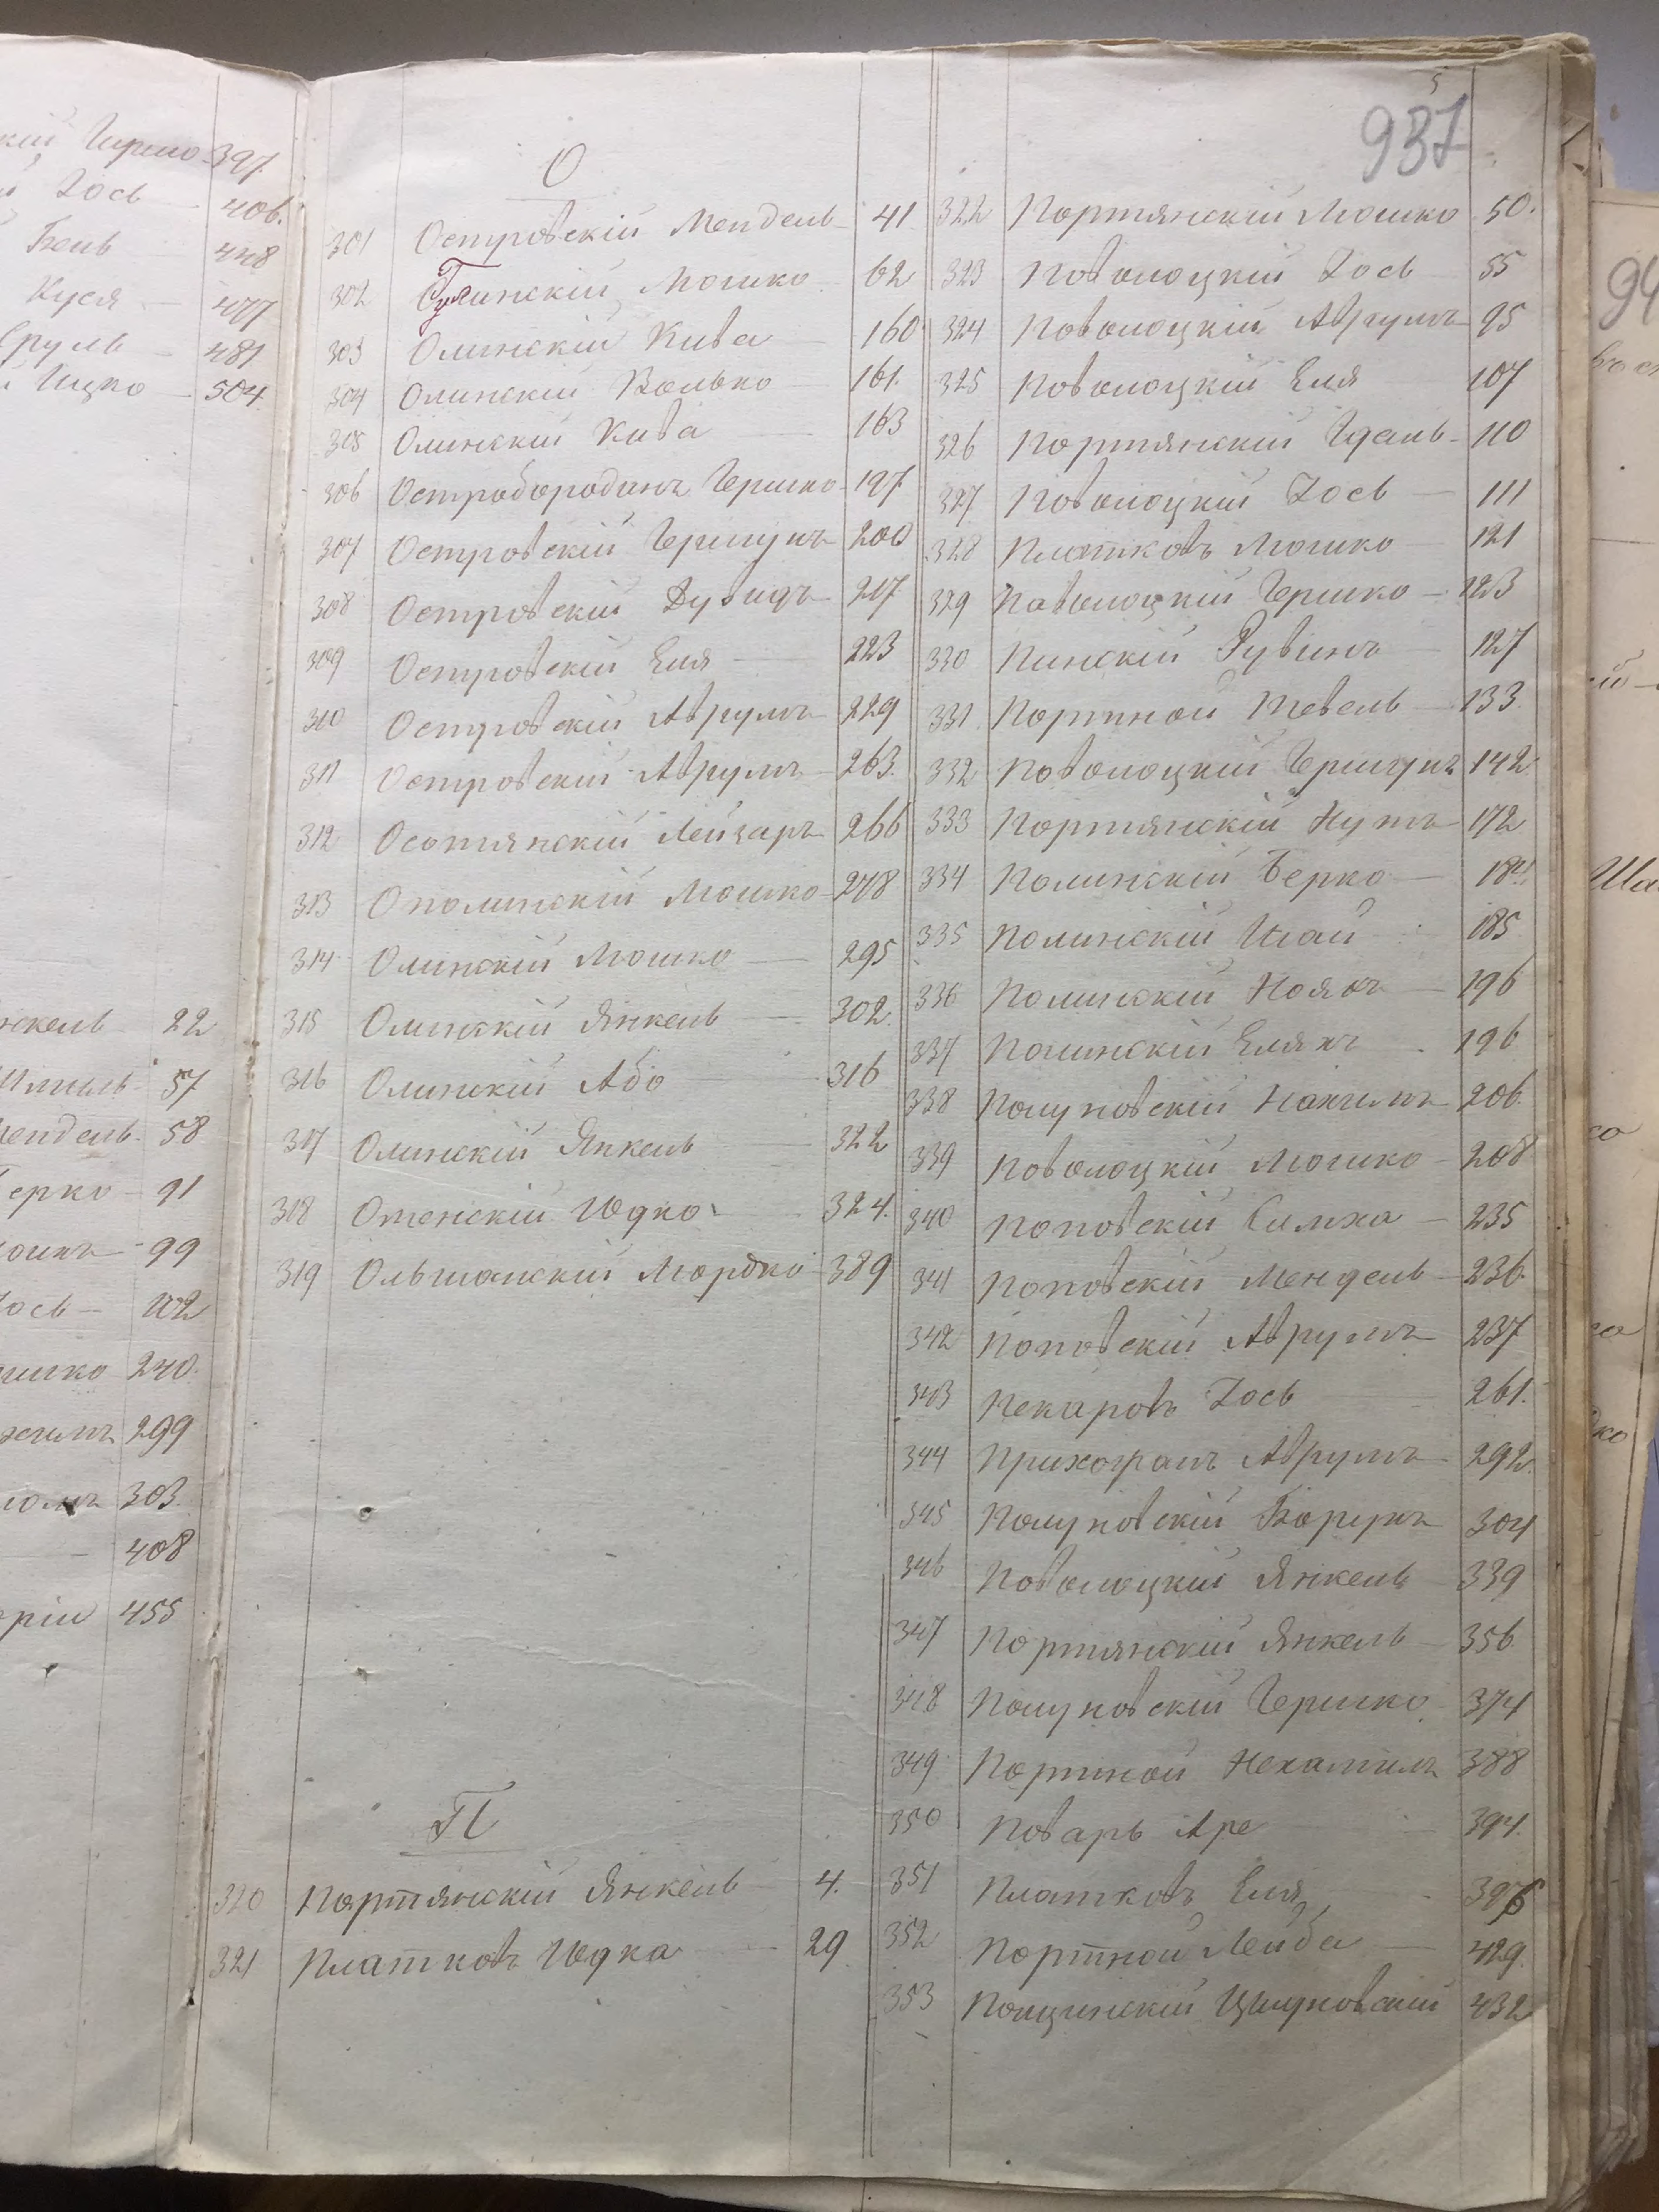 кій Гершко 397
й Iось 406.
Бень 448
Куся 477
Сруль 481
й Ицко 504
нкель 22
Шмиль 57
Мендель 58
Берко 91
99
Iось 102
шко 240
299
303
408
455
5
937
О
301 Островскій Мендель 41
302 Мошко 62
303 Олинскій Кива 160
304 Олинскій Волько 161.
305 Олинскій Кива 163
306 Остробородинъ Гершко 197
307 Островскій Гершунъ 200
308 Островскій Дувидъ 217
309 Островскій Еля 223
310 Островскій Аврумъ 229
311 Островскій Аврумъ 263.
312 Осотянскій Лейзаръ 266
313 Ополинскій Мошко 278
314 Олинскій Мошко 295
315 Олинскій Янкель 302
316 Олинскій Або 316
317 Олинскій Янкель 322
318 Отенскій Юдко 324.
319 Ольшанскій Мордко 389
П
320 Портянскій Янкель 4.
321 Платковъ Юдка 29
322 Портянскій Мошко 50.
323 Поволоцкій Iось 55
324 Поволоцкій Аврумъ 95
325 Поволоцкій Еля 107
326 Портянскій Идель 110
327 Поволоцкій Iось 111
328 Платковъ Мошко 121
329 Паволоцкій Гершко 123
330 Пинскій Рувинъ 127
331 Портной Тевель 133
332 Поволоцкій Гершунъ 142
333 Портянскій Нутъ 172
334 Полинскій Берко 184.
335 Полинскій Исай 185
336 Полинскій Нояхъ 196
337 Полинскій Елякъ 196
338 Полуновскій Нахимъ 206.
339 Поволоцкій Мошко 208
340 Поповскій Симха 235
341 Поповскій Мендель 236.
342 Поповскій Аврумъ 237
343 Пекаровъ Iось 261.
344 Аврумъ 292.
345 Полуновскій Борухъ 304
346 Поволоцкій Янкель 339
347 Портянскій Янкель 356
348 Полуновскій Гершко 374
349 Портной Нехамилъ 388
350 Поваръ Аре 394.
351 Платковъ Еля 396
352 Портной Лейба 429.
353 432